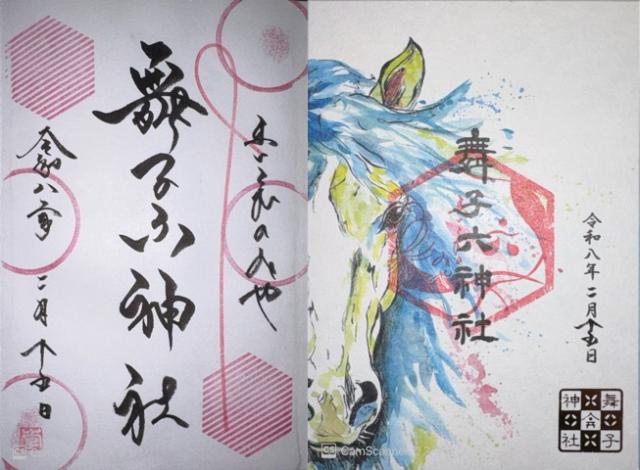 舞子六神社
令和八年 二月 十五日
舞子六神社
令和八年二月十五日
舞子
六
神社
CS CamScanner